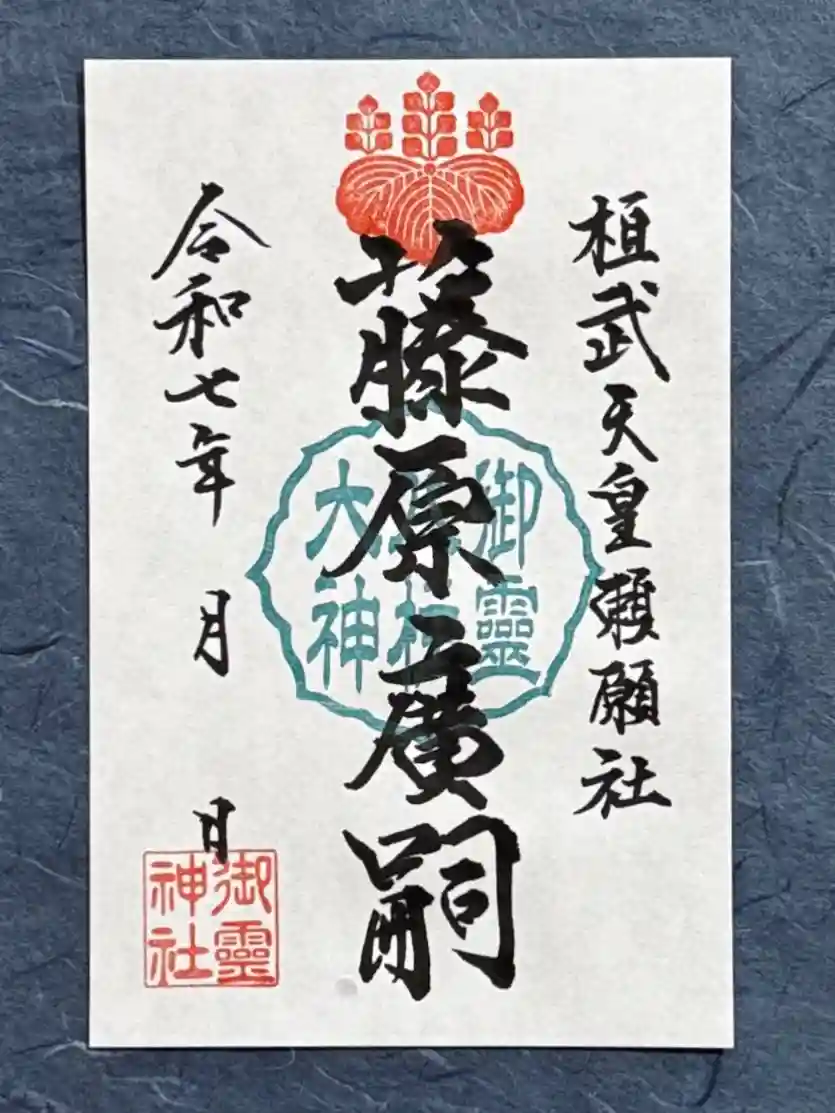 桓武天皇勅願社
藤原廣嗣
御靈
大神
令和七年 月 日
御靈
神社